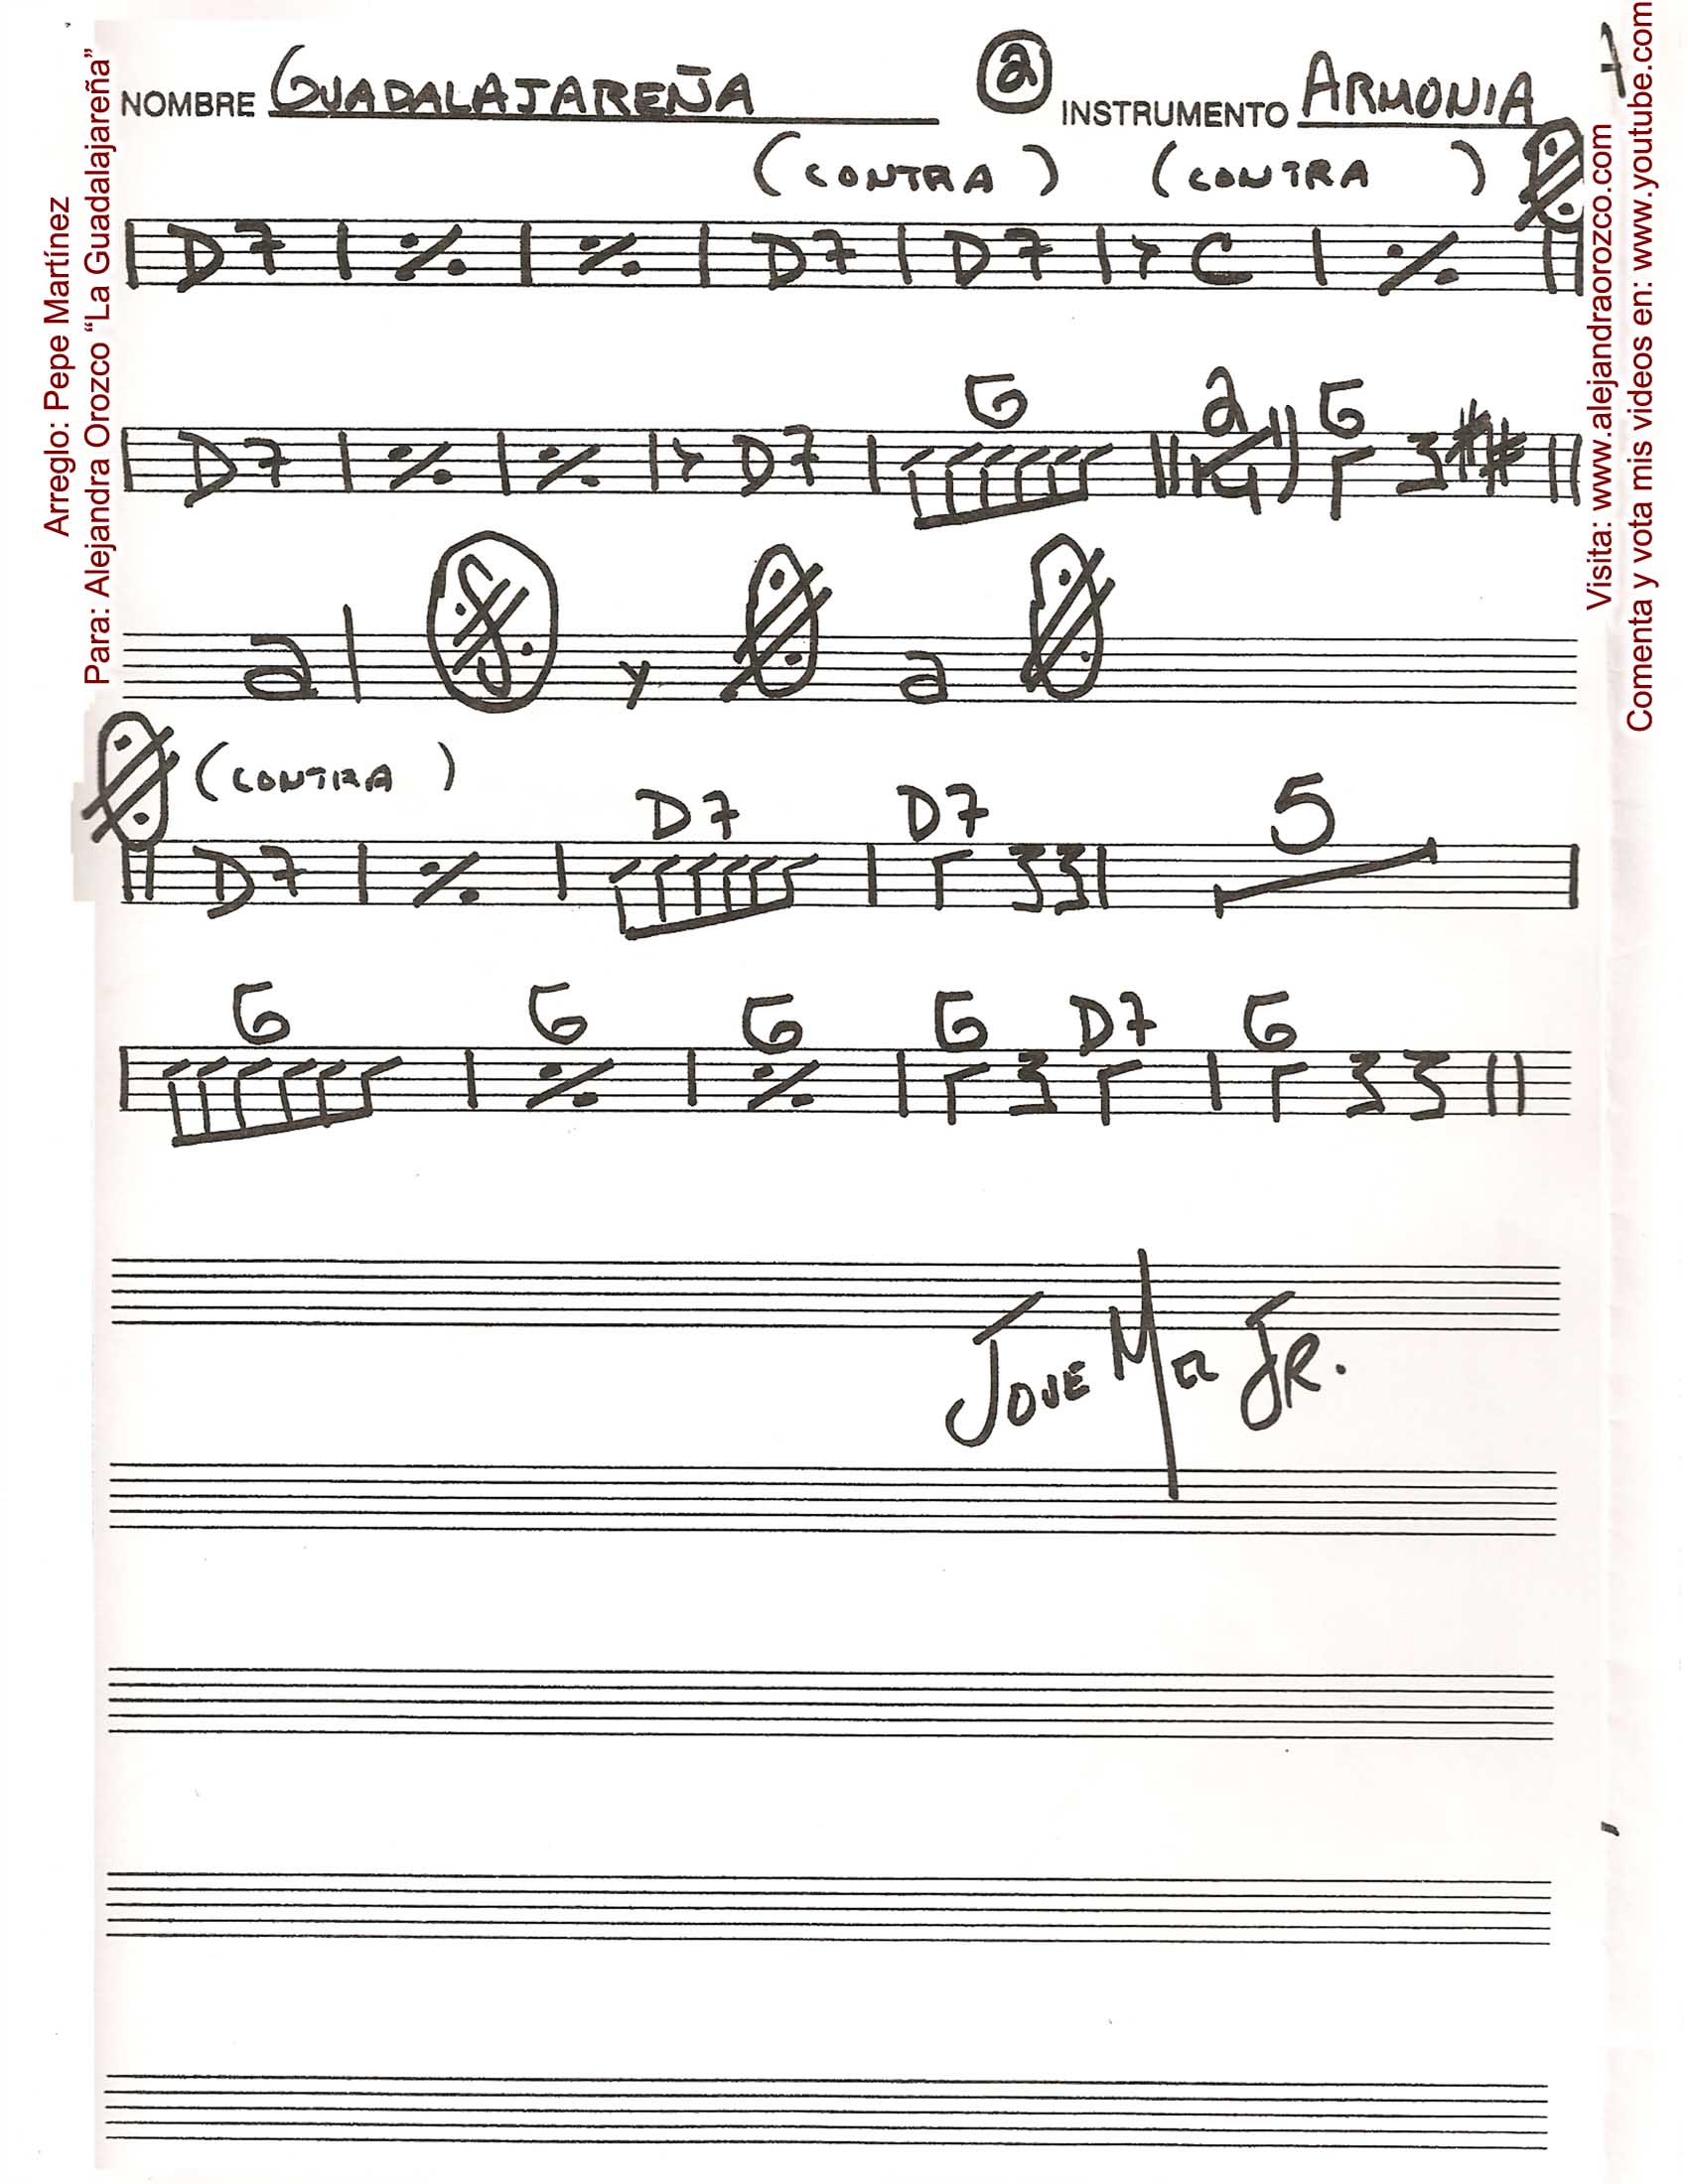 NOMBRE GUADALAJAREÑA ② INSTRUMENTO ARMONIA
(CONTRA) (CONTRA)
D7 | ٪ | ٪ | D7 | D7 | > C | ٪
G 2 G
D7 | ٪ | ٪ | > D7
al y a
(CONTRA)
D7 D7 5
D7 | ٪
G G G G D7 G
JR.
Arreglo: Pepe Martínez
Para: Alejandra Orozco “La Guadalajareña”
Visita: www.alejandraorozco.com
Comenta y vota mis videos en: www.youtube.com